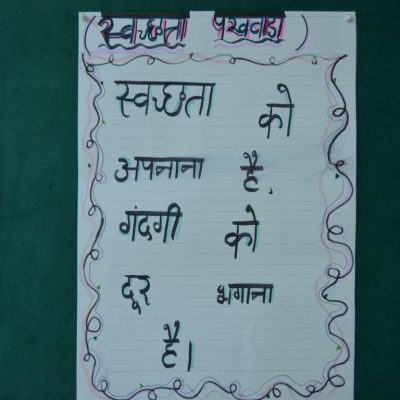 (स्वच्छता पखवाडा)
स्वच्छता को
अपनाना है,
गंदगी को
दूर भगाना
है।